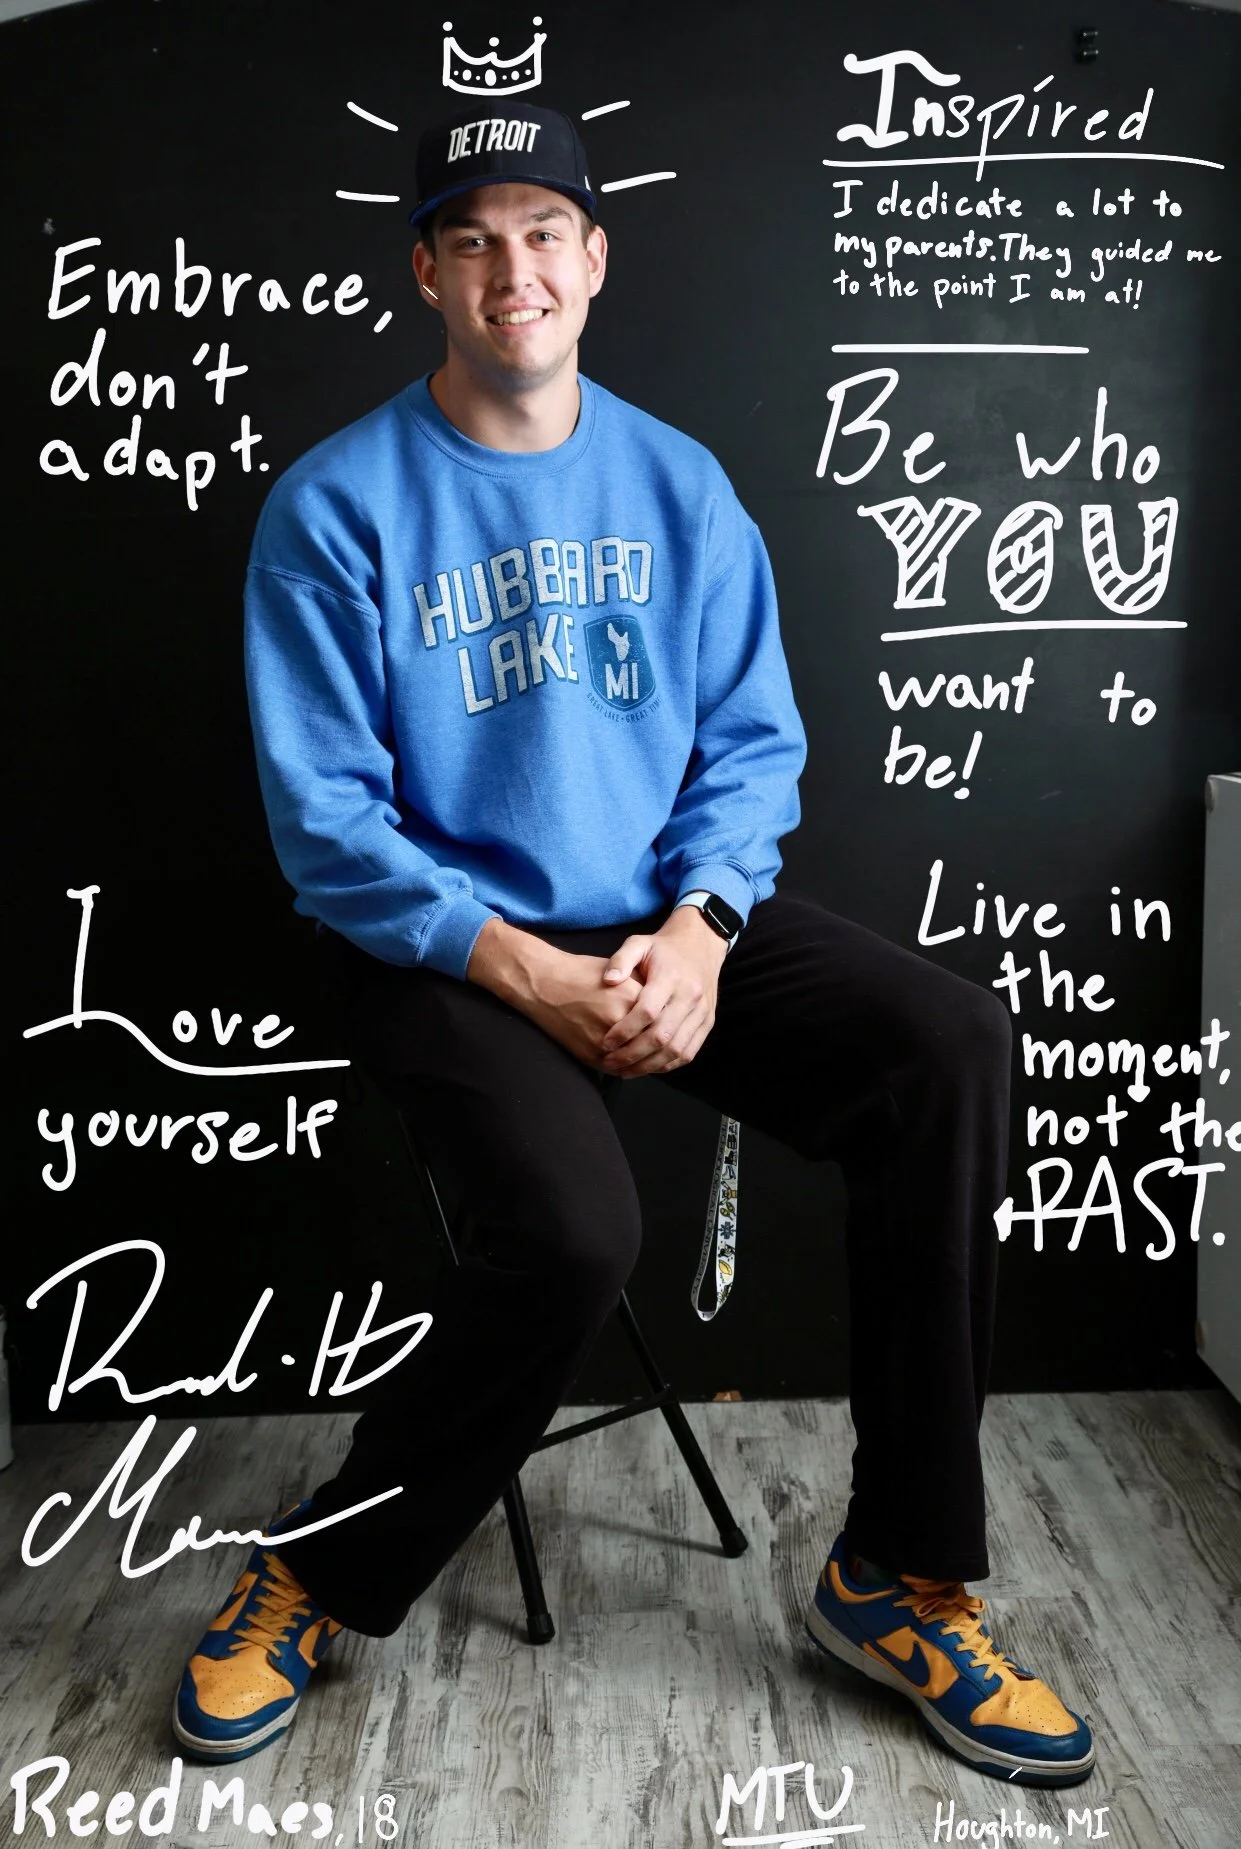 DETROIT
Inspired
I dedicate a lot to
my parents. They guided me
to the point I am at!
Embrace,
don't
adapt.
Be who
YOU
want to
be!
HUBBARD
LAKE
MI
GREAT LAKE • GREAT
Live in
the
moment,
not the
PAST.
Love
yourself
Reed Maes, 18
MTU
Houghton, MI